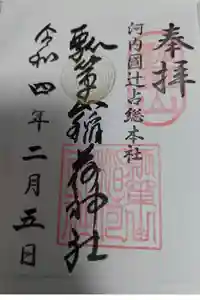 奉拝
河内國辻占総本社
瓢箪山稲荷神社
令和四年二月五日